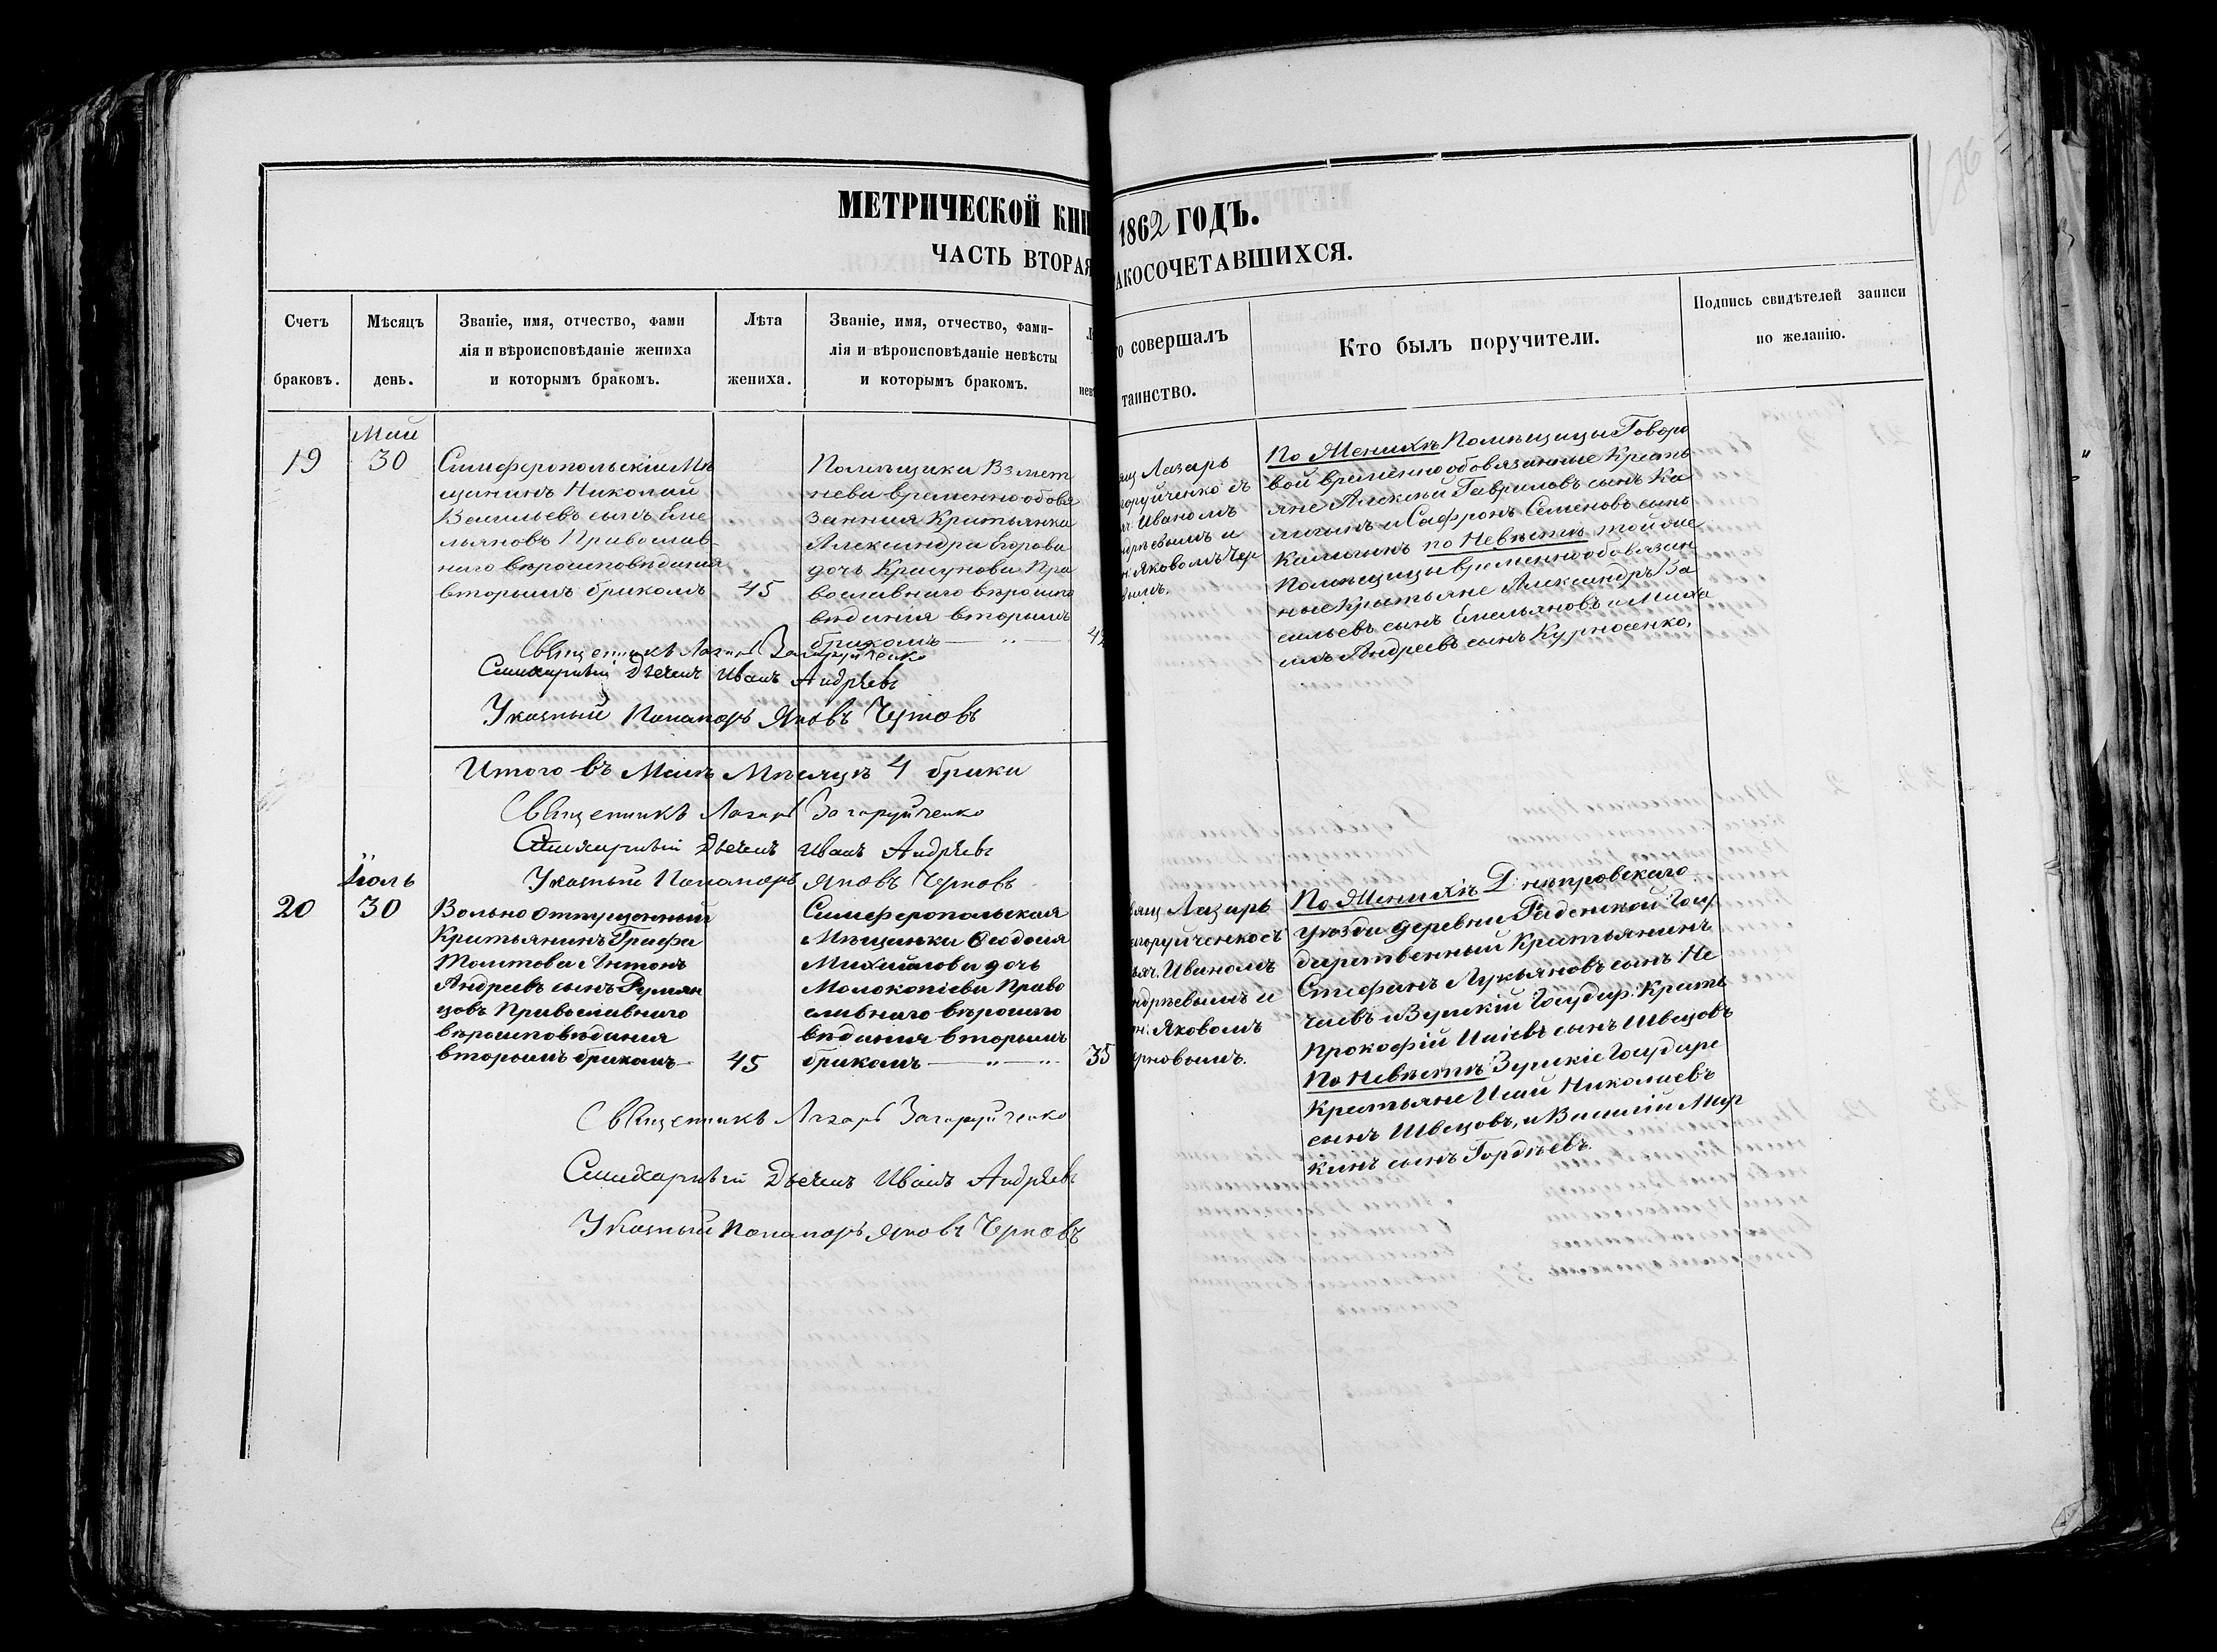 МЕТРИЧЕСКОЙ КНИ 1862 ГОДЪ.
ЧАСТЬ ВТОРАЯ АКОСОЧЕТАВШИХСЯ.
Счетъ браковъ.
Мѣсяцъ день.
Званіе, имя, отчество, фами
лія и вѣроисповѣданіе жениха
и которымъ бракомъ.
Лѣта жениха.
Званіе, имя, отчество, фами-
лія и вѣроисповѣданіе невѣсты
и которымъ бракомъ.
о совершалъ
таинство.
Кто былъ поручители.
Подпись свидѣтелей записи
по желанію.
19
Май
30
Симферопольскій Мѣ
щанинъ Николай
Васильевъ сынъ Еме
льяновъ Православ-
наго вѣроисповѣданія
вторымъ бракомъ
45
Помѣщика Взмет
нева временнообовя
занная Крестьянка
Александра Егорова
дочь Красунова Пра
вославнаго вѣроиспо
вѣданія вторымъ
бракомъ
ящ Лазарь
горуйченко съ
яч. Иваномъ
ндрѣевымъ и
н. Яковомъ Чер
По Женихѣ Помѣщицы Говоро
вой временнообовязанные Кресть
яне Алексѣй Гавриловъ сынъ Ка
лагинъ и Сафронъ Семеновъ сынъ
Калагинъ по Невѣстѣ той же
Помѣщицы временнообовязан
ные Крестьяне Александръ Ва
сильевъ сынъ Емельяновъ и Миха
илъ Андреевъ сынъ Курносенко.
Священникъ Лазарь Загоруйченко
Стихарный Дьячекъ Иванъ Андрѣевъ
Указный Пономарь Яковъ Черновъ
Итого въ Маѣ Мѣсяцѣ 4 брака
Священникъ Лазарь Загоруйченко
Стихарный Дьячекъ Иванъ Андрѣевъ
Указный Пономарь Яковъ Черновъ
20
Іюль
30
Вольно отпущенный
Крестьянинъ Графа
Антонъ
Андреевъ сынъ Румян
цовъ Православнаго
вѣроисповѣданія
вторымъ бракомъ
45
Симферопольская
Мѣщанка Ѳеодосія
Михайлова дочь
Молокопіева Право
славнаго вѣроиспо
вѣданія вторымъ
бракомъ
35
вящ Лазарь
агоруйченко съ
ьяч. Иваномъ
ндрѣевымъ и
н. Яковомъ
ерновымъ.
По Женихѣ Днѣпровскаго
уѣзда деревни Раденской Госу
дарственный Крестьянинъ
Стефанъ Лукьяновъ сынъ Не
чаевъ и Зуйскій Государ. Кресть
Прокофій Исаіевъ сынъ Швецовъ
По Невѣстѣ Зуйскіе Государс
Крестьяне Исай Николаевъ
сынъ Швецовъ, и Василій Мар
кинъ сынъ Гордѣевъ.
Священникъ Лазарь Загоруйченко
Стихарный Дьячекъ Иванъ Андрѣевъ
Указный Пономарь Яковъ Черновъ